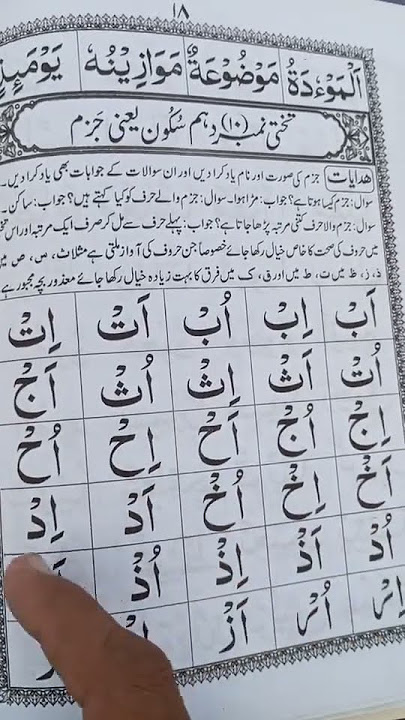 ١٨
اَلْمَوْءٗدَةُ مَوْضُوْعَةٌ مَوَازِيْنُهٗ يَوْمَئِذٍ
تختی نمبر (۱۰) دہم سُکُون یعنی جَزم
ھدایات جزم کی صورت اور نام یاد کرادیں اور ان سوالات کے جوابات بھی یاد کرادیں۔
سوال: جزم کیسا ہوتا ہے؟ جواب: مڑا ہوا۔ سوال: جزم والے حرف کو کیا کہتے ہیں؟ جواب: ساکن۔
سوال: جزم والا حرف کتنی مرتبہ پڑھا جاتا ہے؟ جواب: پہلے حرف سے مل کر صرف ایک مرتبہ اور اس
میں حروف کی صحت کا خاص خیال رکھا جائے خصوصاً جن حروف کی آواز ملتی ہے مثلاً ث، س، ص میں
ذ، ز، ظ میں ت، ط میں اور ق، ک میں فرق کا بہت زیادہ خیال رکھا جائے معذور بچہ مجبور ہے
اَبْ اِبْ اُبْ اَتْ اِتْ
اُتْ اَثْ اِثْ اُثْ اَجْ
اِجْ اُجْ اَحْ اِحْ اُحْ
اَخْ اِخْ اُخْ اَدْ اِدْ
اُدْ اَذْ اِذْ اُذْ
اِرْ اُرْ اَزْ